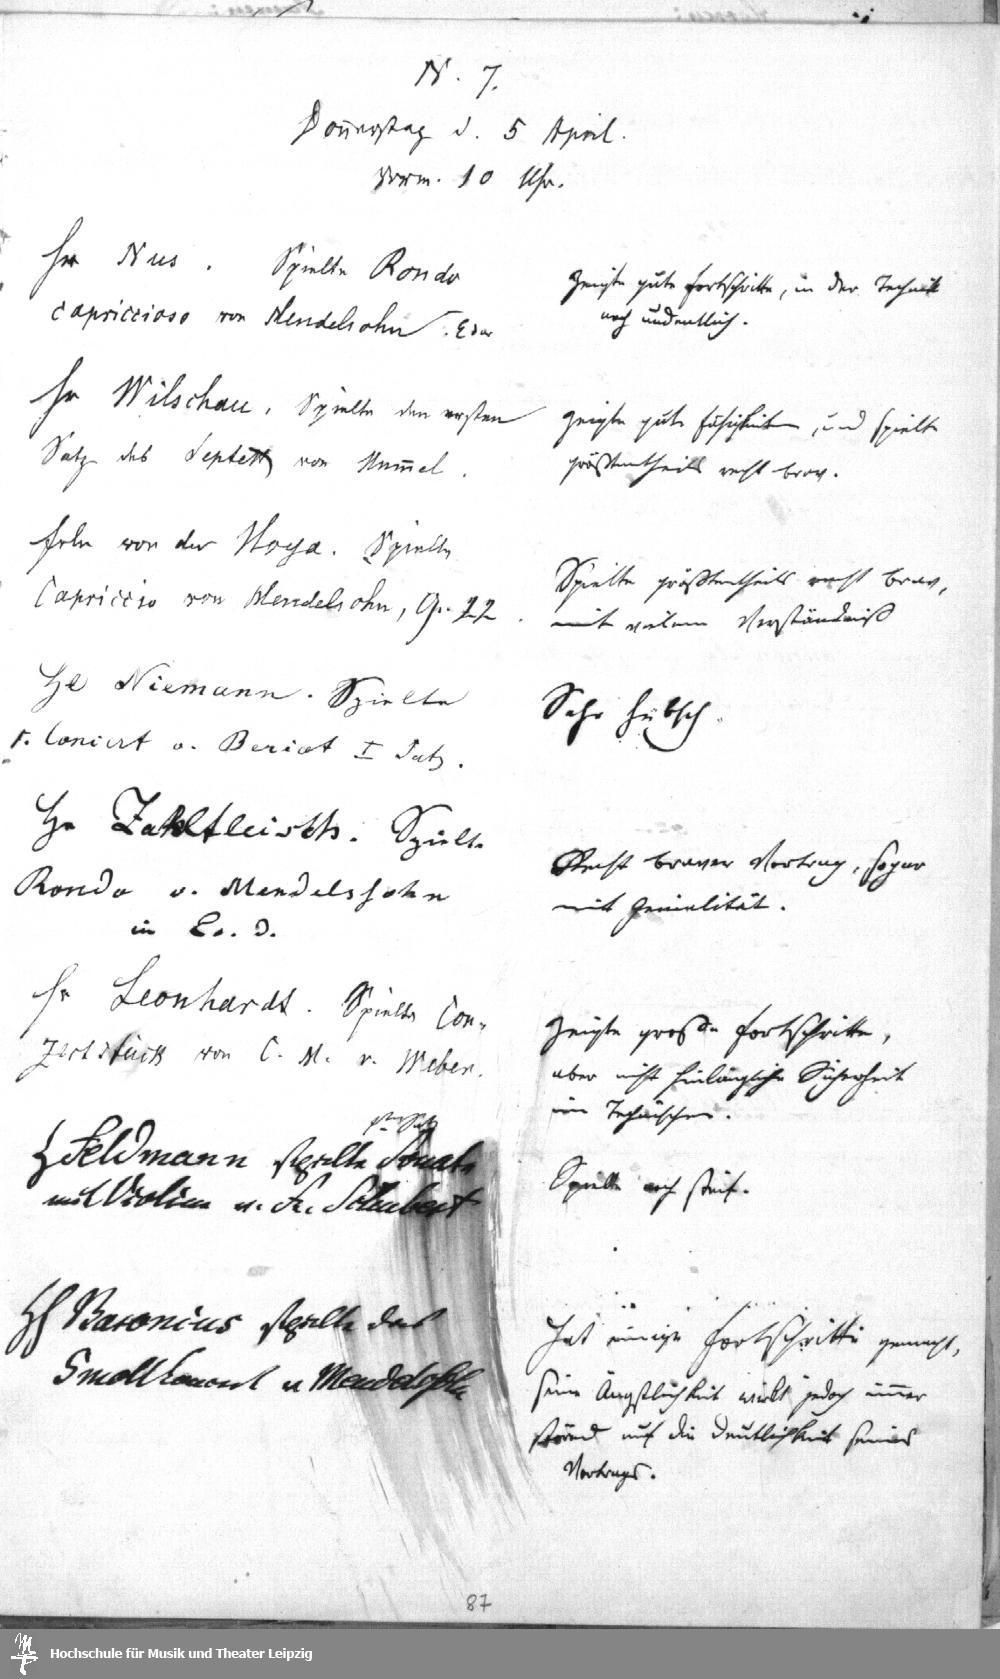 N. 7.
Donnerstag d. 5 April.
Vorm. 10 Uhr.
Hr Nus. Spielte Rondo
capriccioso von Mendelsohn. Edur
Zeigte gute Fortschritte, in der Technik
noch undeutlich.
Hr Wilschau, Spielte den ersten
Satz des Septett von Hummel.
Zeigte gute Fähigkeiten, und spielte
größtentheils recht brav.
Frln von der Hoya. Spielte
Capriccio von Mendelsohn, Op. 22.
Spielte größtentheils recht brav,
mit vielem Verständniß
Hr Niemann. Spielte
Concert v. Beriot I Satz.
Sehr hübsch.
Hr Spielte
Rondo v. Mendelssohn
in Es. d.
Recht braver Vortrag, sogar
mit Genialität.
Hr Leonhardt. Spielte Con-
zertstück von C. M. v. Weber.
Zeigte große Fortschritte,
aber nicht hinlängliche Sicherheit
im Technischen.
Satz
H Feldmann spielte Sonate
mit Violine v. Fr. Schubert
Spielte noch steif.
H Baronius spielte das
Gmoll Concert v Mendelssohn
Hat einige Fortschritte gemacht,
seine Ängstlichkeit wirkt jedoch immer
störend auf die Deutlichkeit seines
Vortrags.
87
Hochschule für Musik und Theater Leipzig